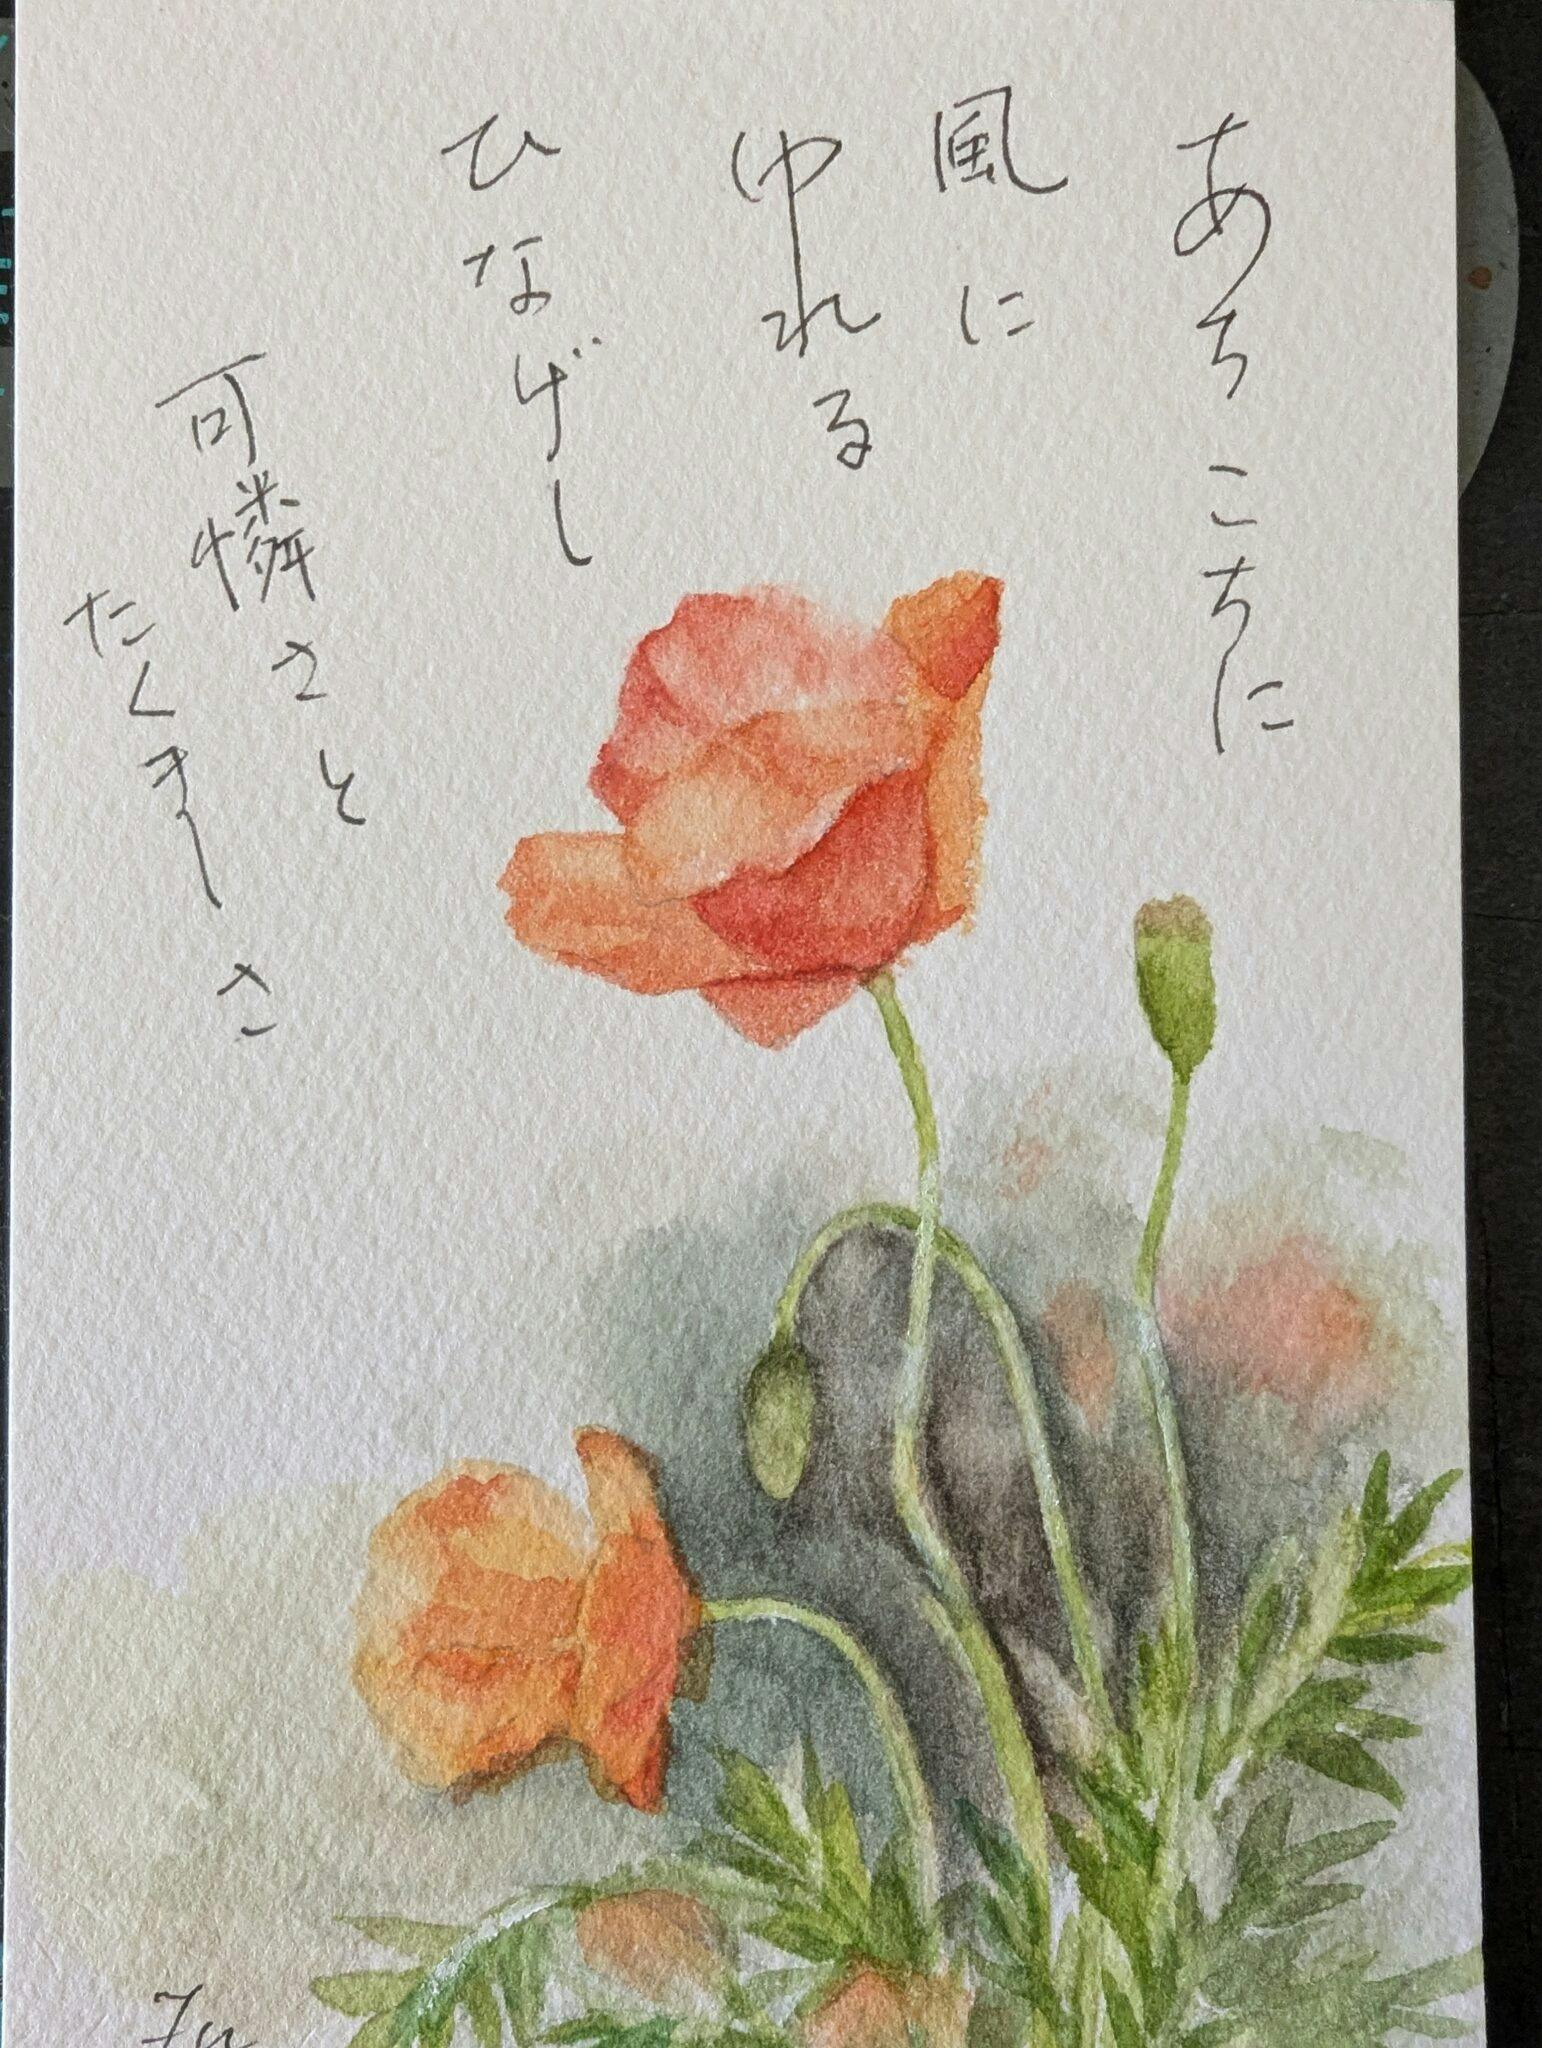 あちこちに
風に
ゆれる
ひなげし
可憐さと
たくましさ